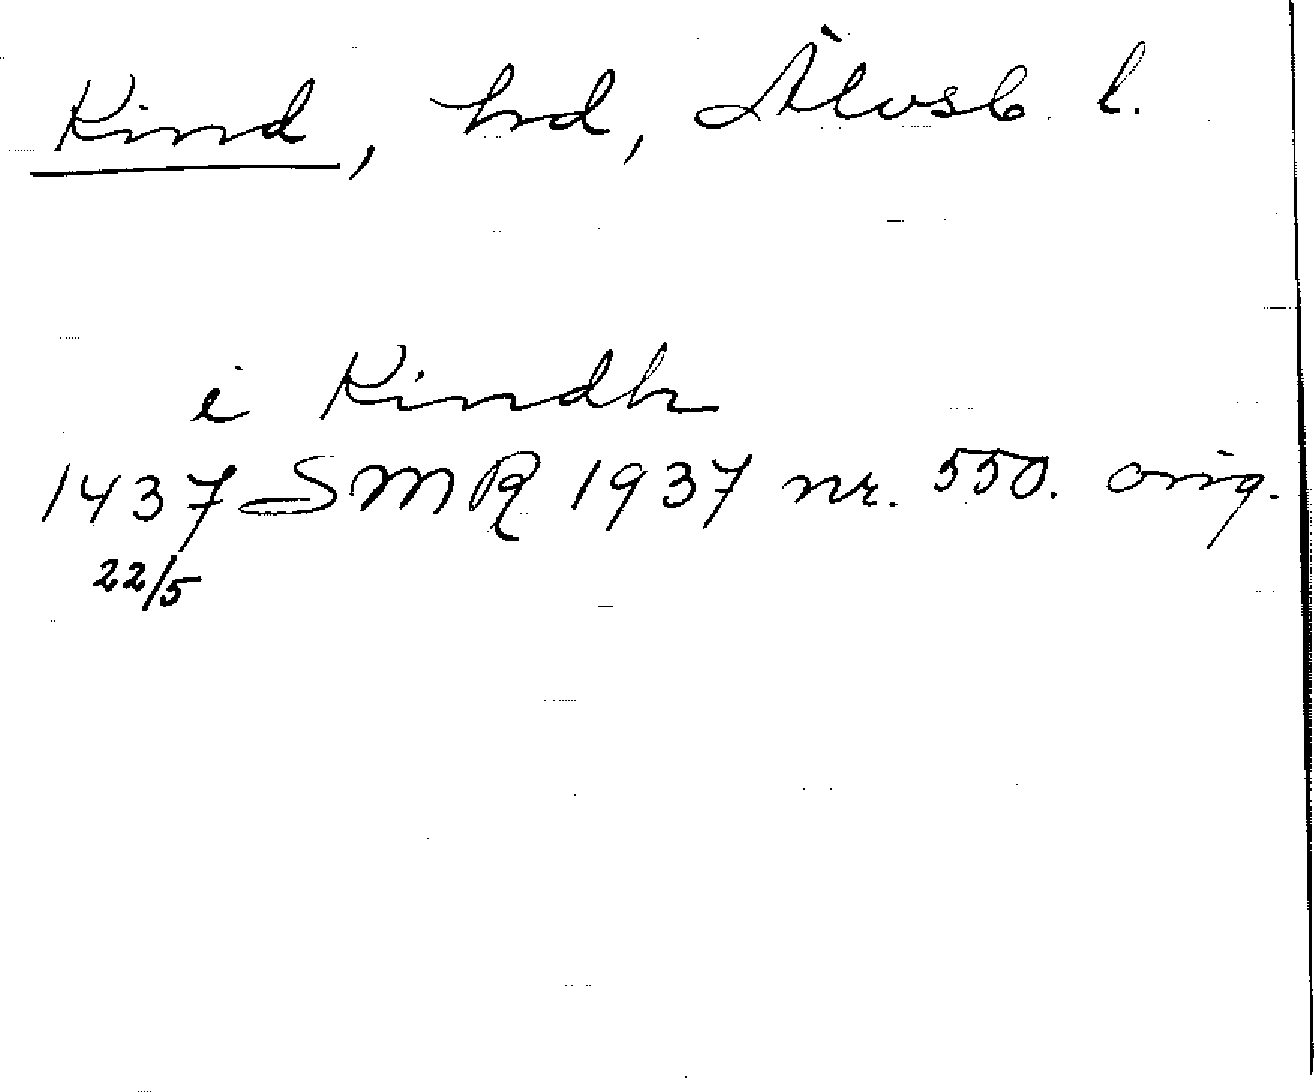 Kind, hd, Älvsb. l.
i Kindh
1437 SMR 1937 nr. 550. orig.
22/5